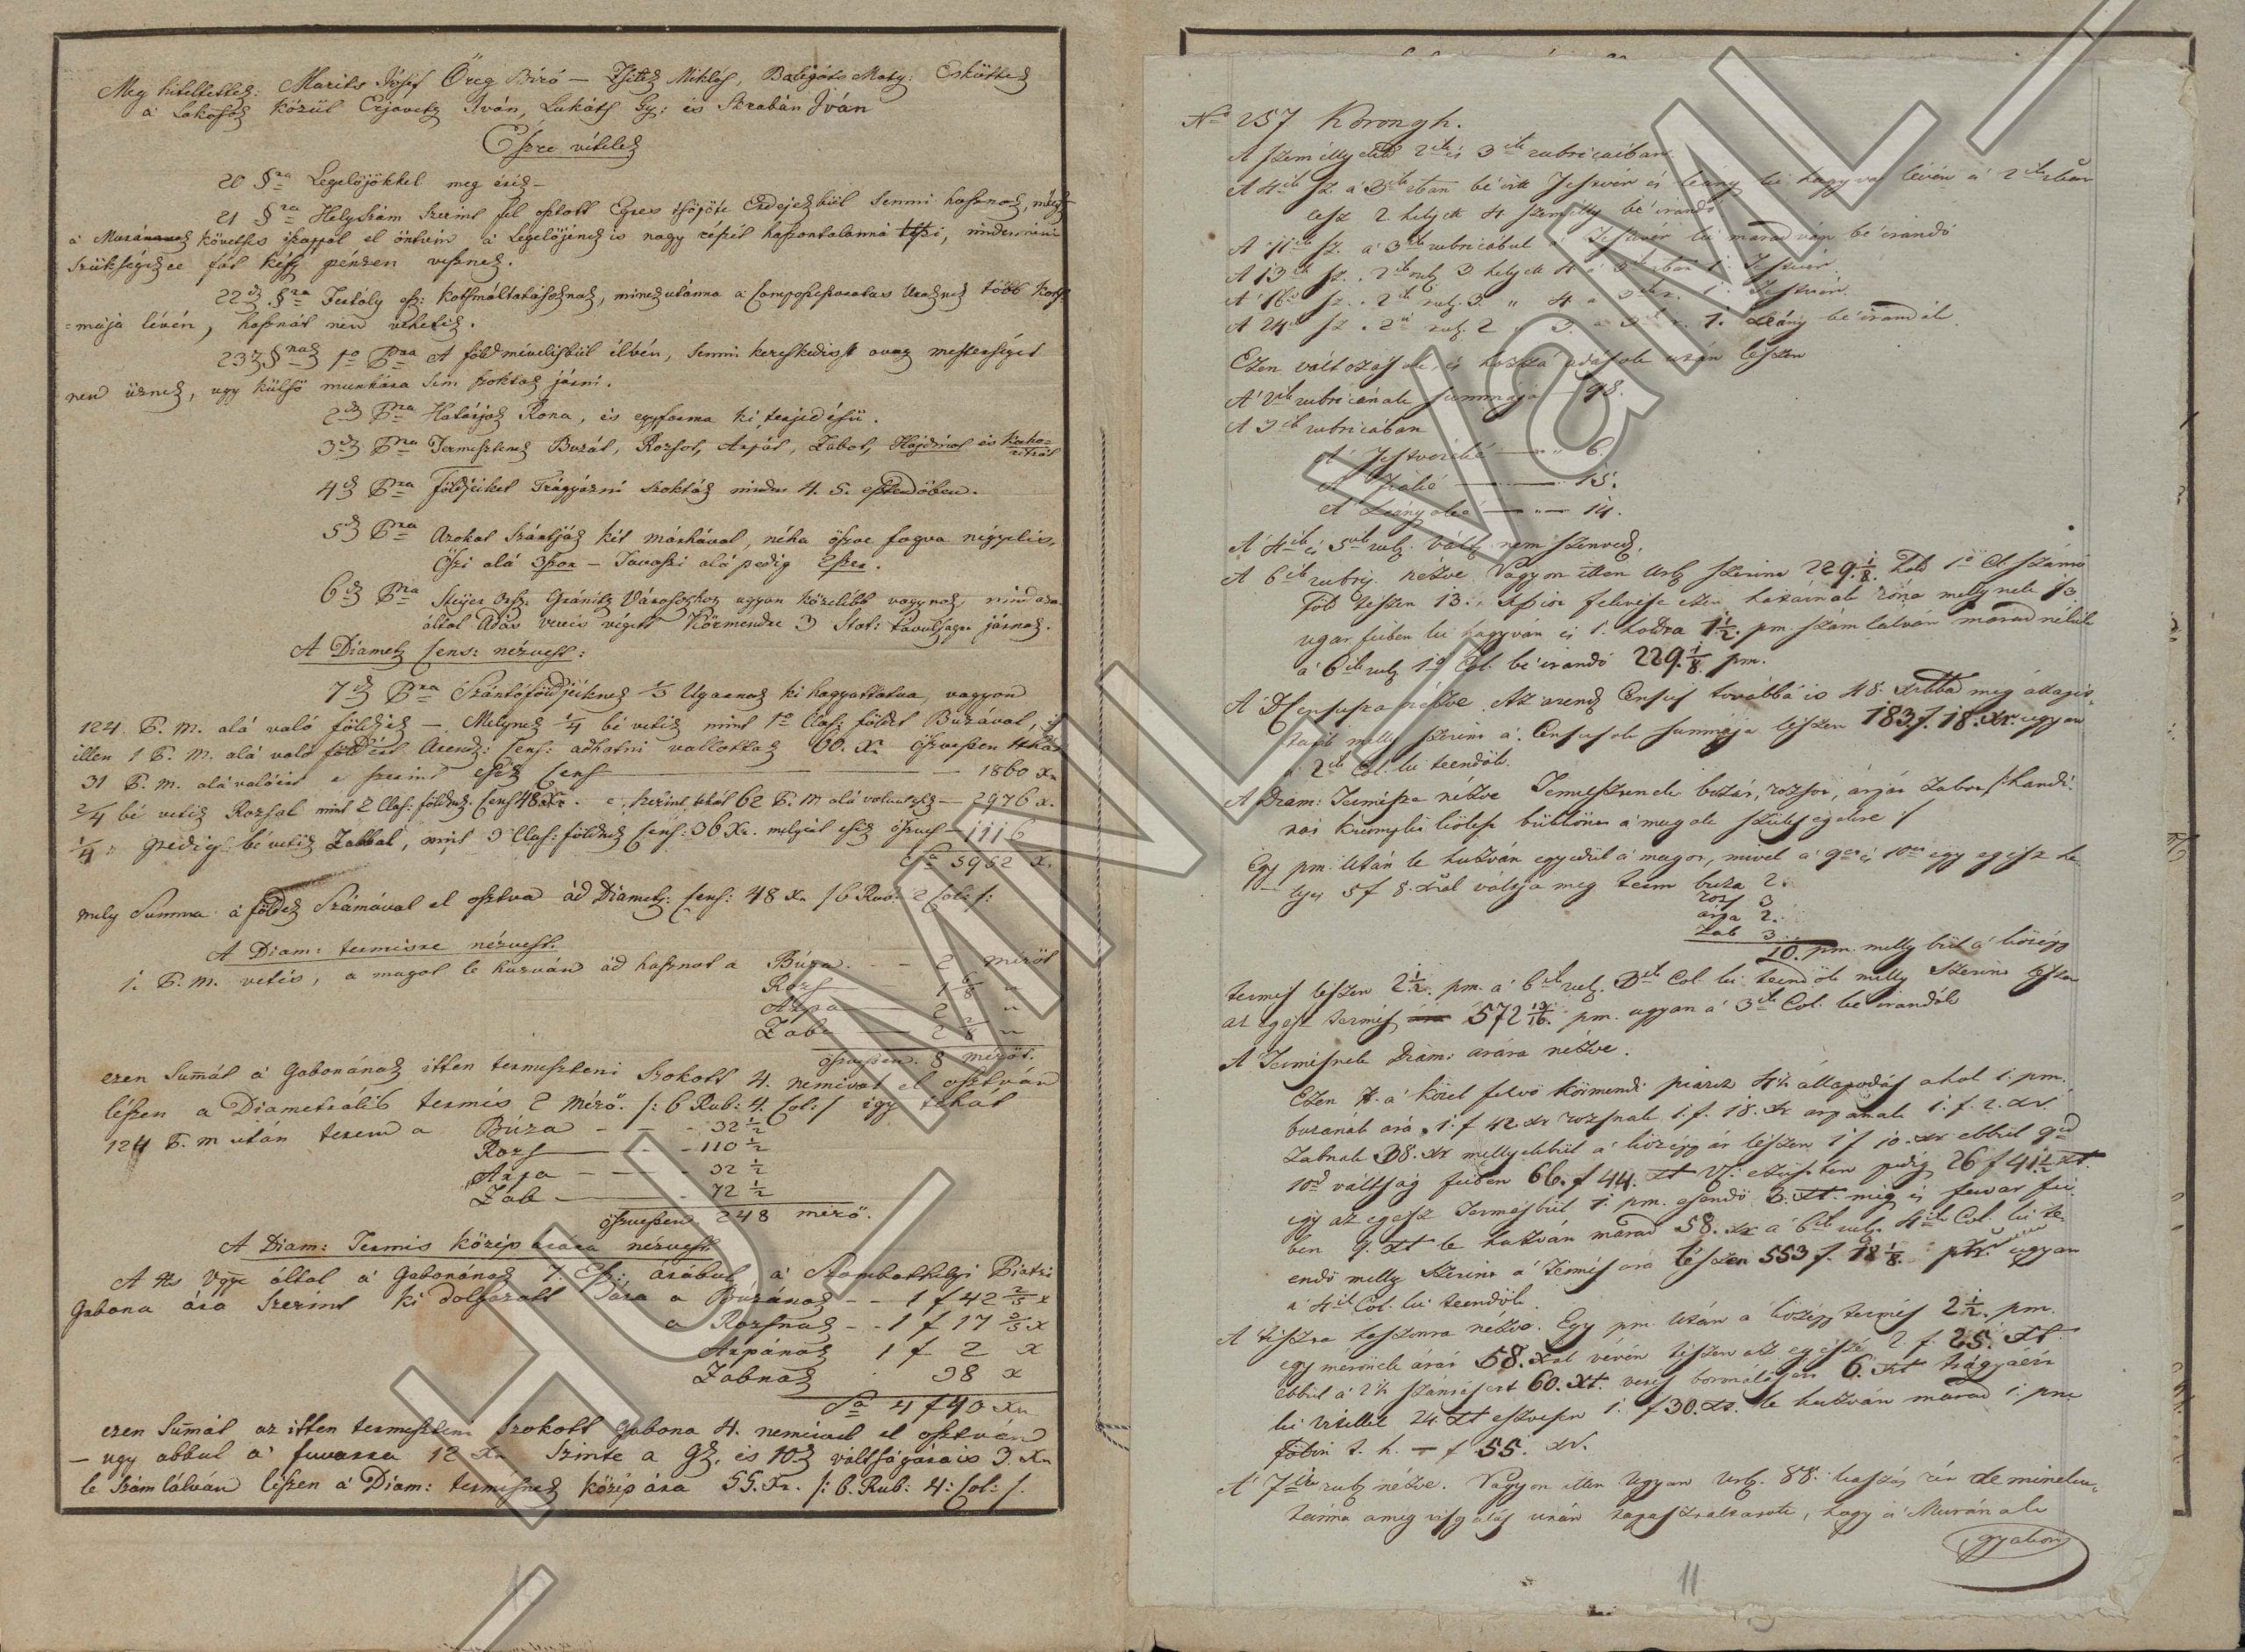 Meg hiteltettek: Marits Jósef Öreg Biró — Miklós, Baligáts Maty: Esküttek
a' Lakosok közül Erjavetz Iván, Lukáts Gy: és Skrabán Iván
Észre vételek
20 §ra Legelőjökkel meg érik —
21 §ra Hely szám szerint fel osztott Egres tsöpöte Erdejekbül semmi hasznok,
a' Murának követses iszappal el öntvén a' Legelőjének is nagy részit haszontalanná
szükségekre fát kész pénzen vesznek.
22k §ra Tertály esz: Kotsmáltatásoknak, minekutánna a' Compossessoratus Uraknak több kots-
=mája lévén, hasznát nem vehetik.
23k §nak 1o Pra A földmivelésbül élvén, semmi kereskedést avag mesterséget
nem üznek, ugy külső munkára sem szoktak járni.
2k Pra Határjok Róna, és egyforma ki terjedésü.
3k Pra Termesztenek Buzát, Rozsot, Arpát, Zabot, Hajdinát és Kuko-
ritzát
4k Pra földjeiket Trágyázni szokták minden 4. 5. esztendőben.
5k Pra Azokat szántják két marhával, néha öszve fogva négyelis,
Őszi alá 3szor — Tavaszi alá pedig 2szer.
6k Pra Steyer Orsz: Gránitz Városokhoz ugyan közelebb vagynak,
által Adás vevés végett Körmendre 3 Stat: távulságra járnak.
A Diametr Cens: nézvést:
7k Pra Szántóföldjeiknek 1/3 Ugarnak ki hagyattatva, vagyon
124 P. M. alá való földjök — Melynek 1/4 bé vetik mint 1ő Class: földet Buzával,
illen 1 P. M. alá való földért Arend: Cens: adhatni vallottak 60. Xr öszvessen tehát
31 P. M. alá valóért e szerint esik Cens — 1860 xr
2/4 bé vetik Rozsal mint 2 Class: földnek Cens 48 Xr. e szerint tehát 62 P. M alá — 2976 x.
1/4 pedig bé vetik Zabbal, mint 3 Class: földnek Cens: 36 Xr. melyért esik öszves — 1116
Sa 5952 X.
mely Summa a' földek Számával el osztva ád Diametr: Cens: 48 Xr /: 6 Rub: 2 Col: /:
A Diam: termésre nézvést.
1. P. M. vetés, a magot le huzván ád hasznot a Búza — — 2 mérőt
Rozs — 1 6/8 "
Arpa — 2 "
Zab — 2 2/8 "
öszvessen. 8 mérőt.
ezen Sumát a' Gabonának itten termeszteni szokott 4. nemivel el osztván
lészen a Diametrális termés 2 Mérő. /: 6 Rub: 4. Col: / igy tehát
124 P. M után terem a Búza — — 32 1/2
Rozs — — 110 1/2
Arpa — — — 32 1/2
Zab — — 72 1/2
öszvessen 248 mérő.
A Diam: Termés közép árára nézvést
által a' Gabonának 7. Esz: árábul a' Szombathelyi Piatzi
Gabona ára szerint ki dolgozott ára a Búzának — — 1 f 42 2/3 x
a Rozsnak — — 1 f 17 2/3 x
Arpának 1 f 2 x
Zabnak 38 x
Sa 4 f 40 Xr
ezen Sumát az itten termeszteni szokott Gabona 4. nemivel el osztván
— ugy abbul a' fuvarra 12 Xr szinte a 9k, és 10k váltságárais 3. Xr
le számlálván lészen a' Diam: termésnek közép ára 55. Xr. /: 6. Rub: 4: Col: /.
No 257 Korongh.
A személlyeket 2ik és 3ik rubricaiban
A 4ik sz. a' 3ik rban bé irt Jestvér és leány ki hagyva lévén a' 2ik rban
lesz 2 helyett 4 személly bé irandó
A 11ik sz. a' 3ik rubricabul a' Jestvér ki maradván bé irandó
A 13ik sz. 2ik rub. 3 helyett 4 a 3ik rban 1. Jestvér.
A 16ik sz. 2ik rub. 3. " 4 a 3ik r. 1. Jestvér.
A 24ik sz. 2ik rub. 2 " 3. a 3ik r. 1. Leány bé irandók
Ezen változások, és hozzá adások után lészen
A' 2ik rubricának summája — 98.
A 3ik rubricában
A' Jestvéreké — " 6.
A Fiaké — 15.
A' Leányoké — " — 14.
A' 4ik és 5ik rub. vált. nem szenved.
A 6ik rubr. nézve Vagyon itten Urb. szerint 229 1/8. Hold 1ső Cl. számú
föld lészen 13. fekvése ezen határnak róna mellynek 1/3
ugar fejben ki hagyván és 1. holdra 1 1/2. pm. számlálván marad nélküle
a' 6ik rub. 1ő Col. bé irandó 229. 1/8. pm.
A' D. Censusra nézve. Az arend. Census továbbá is 48. xrbba meg állapit-
tatik melly szerint a' Censusok summája lészen 183 f. 18. xr. ugyan
a' 2ik Col. ki teendők.
A Diam: Termésre nézve Termesztenek buzát, rozsot, árpát Zabot
krumplit kölest bükkönt a' magok szükségekre /
Egy pm. után le huzván egyedül a' magot, mivel a' 9ed és 10ed egy egész he-
lyes 5 f 8. xral váltja meg terem buza 2.
rozs 3
árpa 2.
Zab 3.
10. pm. melly bül a' közép
termés lészen 2 1/2. pm. a' 6ik rub. 3ik Col. ki teendők melly szerint lészen
az egész termés 572 13/16. pm. ugyan a' 3ik Col. bé irandók
A' Termésnek Diam: árára nézve.
Ezen H. a' közel fekvő Körmendi piartz 4k állapodás ahol 1. pm.
buzának ára. 1. f 42 xr rozsnak 1. f. 18. xr arpának 1. f. 2. xr.
Zabnak 38. xr mellyekbül a' közép ár lészen 1 f 10. xr ebbül 9ed
10ed váltság fejében 66. f 44. xt V. ezüstben pedig 26 f 41 1/2 xt.
igy az egész Termésbül 1. pm. esendő 3. xt. mig is fuvar fejé-
ben 9. xt le huzván marad 58. xr a' 6ik rub. 4ik Col. ki te-
endő melly szerint a' Termés ára lészen 553 f. 18 1/8. ugyan
a' 4ik Col. ki teendők.
A tiszta haszonra nézve. Egy pm. után a közép termés 2 1/2. pm.
egy mérőnek árát 58. xral vévén lészen az egészé 2 f. 25. xt.
ebbül a' 2k szántásért 60. xt. vetés boronálásért 6. xt trágyáért
ki vitellel 24. xt eszvesen 1. f 30. xt. le huzván marad 1. pm
földön t. h. — f 55. xr.
A' 7ik rub. nézve. Vagyon itten Ugyan Urb. 88. kaszás rét de minek-u-
tánna a meg visgálás után tapasztaltatott, hogy a' Murának
gyakori
11
HU MNL VaML